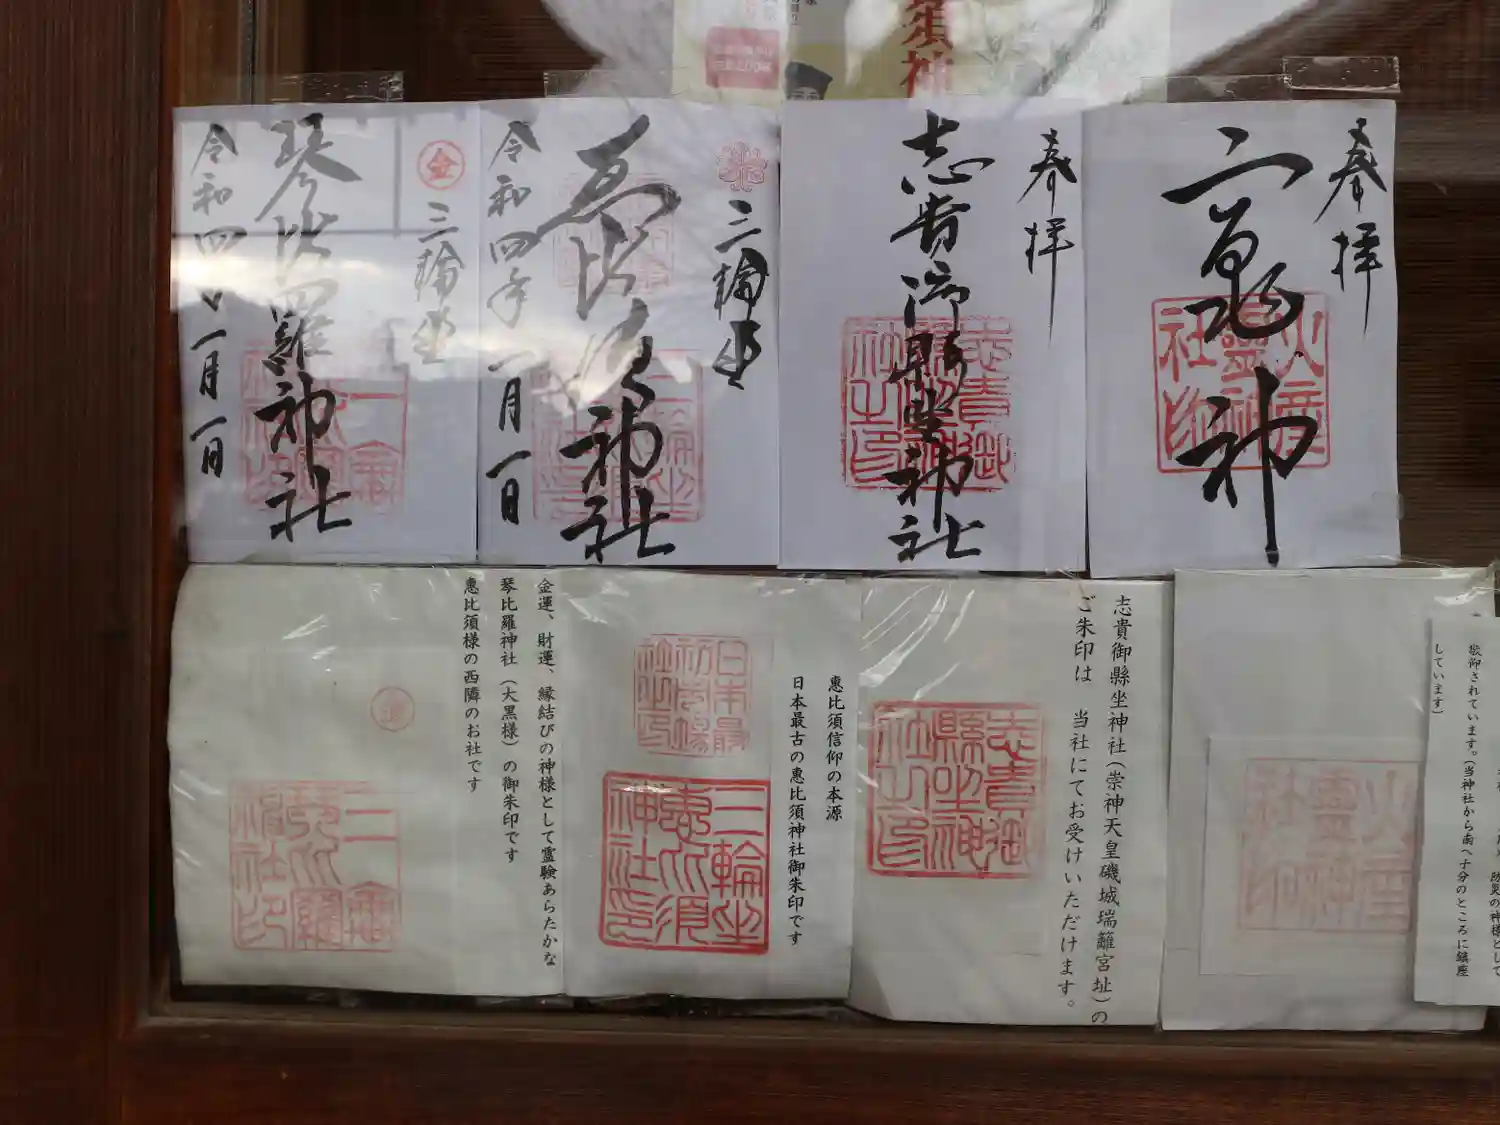 奉拝
志貴御縣坐神社
奉拝
三輪坐
恵比須神社
令和四年一月一日
金
三輪坐
琴比羅神社
令和四年一月一日
志貴御縣坐神社之印
火産霊神社印
敬仰されています。(当神社から南へ十分のところに鎮座
しています)
志貴御縣坐神社(崇神天皇磯城瑞籬宮址)の
ご朱印は 当社にてお受けいただけます。
志貴御縣坐神社之印
恵比須信仰の本源
日本最古の恵比須神社御朱印です
日本最初市場
三輪坐恵比須神社之印
金運、財運、縁結びの神様として霊験あらたかな
琴比羅神社(大黒様)の御朱印です
恵比須様の西隣のお社です
火産霊神社印